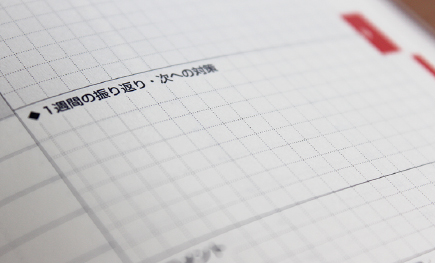 ◆1週間の振り返り・次への対策